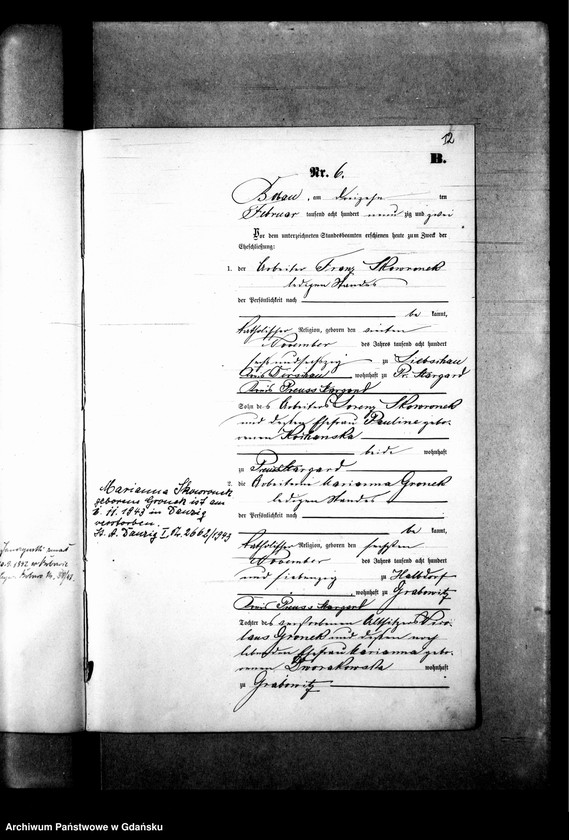 12
B.
Nr. 6.
Bobau, am dreizehn ten
Februar tausend acht hundert neun zig und zwei
Vor dem unterzeichneten Standesbeamten erschienen heute zum Zweck der
Eheschließung:
1. der Arbeiter Franz Skowronek
ledigen Standes
der Persönlichkeit nach
be kannt,
katholischer Religion, geboren den
November des Jahres tausend acht hundert
sechsundsechzig zu Liebschau
Kreis Dirschau wohnhaft zu Pr. Stargard
Kreis Preuss Stargard
Sohn des Arbeiters Lorenz Skowronek
und dessen Ehefrau Pauline gebo-
renen
beide wohnhaft
zu Preuss Stargard
2. die Arbeiterin Marianna Gronek
ledigen Standes
der Persönlichkeit nach
be kannt,
katholischer Religion, geboren den sechsten
November des Jahres tausend acht hundert
und siebenzig zu
, wohnhaft zu Grabowitz
Kreis Preuss Stargard
Tochter des verstorbenen Altsitzers
Gronek und dessen noch
lebenden Ehefrau Marianna gebo-
renen Dworakowska wohnhaft
zu Grabowitz
Marianna Skowronek
geborene Gronek ist am
11. 1943 in Danzig
verstorben.
St. A. Danzig I Nr. 2662/1943
Archiwum Państwowe w Gdańsku